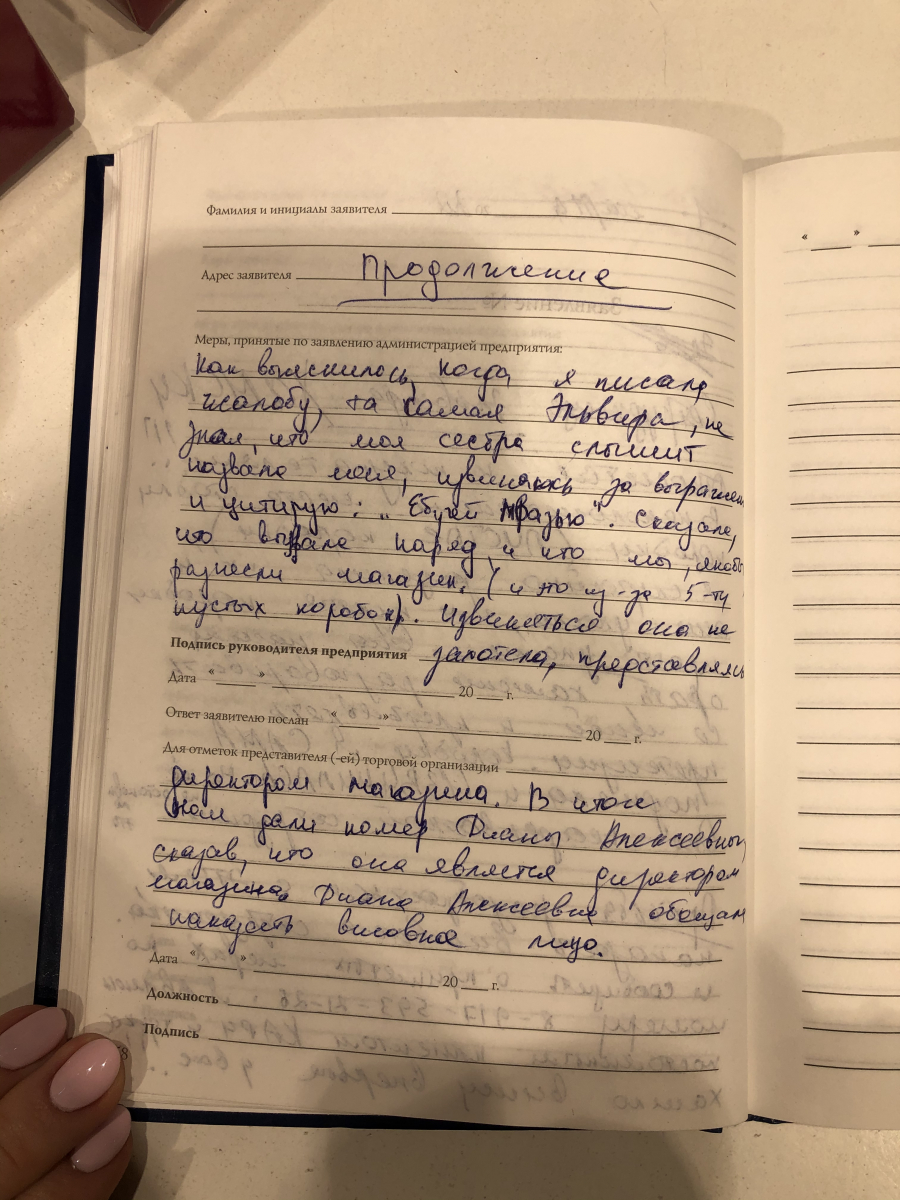 Фамилия и инициалы заявителя
Адрес заявителя Продолжение
Меры, принятые по заявлению администрацией предприятия:
Как выяснилось, когда я писала
жалобу, та самая Эльвира, не
зная, что моя сестра слышит
назвала меня, извиняюсь за выражен
и цитирую: „Ебучей мразью". Сказала,
что вызвала наряд, и что мы, якобы
разнесли магазин. (и это из-за 5-ти
пустых коробок). Извиняться она не
Подпись руководителя предприятия захотела, представляясь
Дата "___" 20 г.
Ответ заявителю послан "___" 20 г.
Для отметок представителя (-ей) торговой организации
директором магазина. В итоге
нам дали номер Дианы Алексеевны,
сказав, что она является директором
магазина. Диана Алексеевна обещала
наказать виновное лицо.
Дата "___" 20 г.
Должность
Подпись